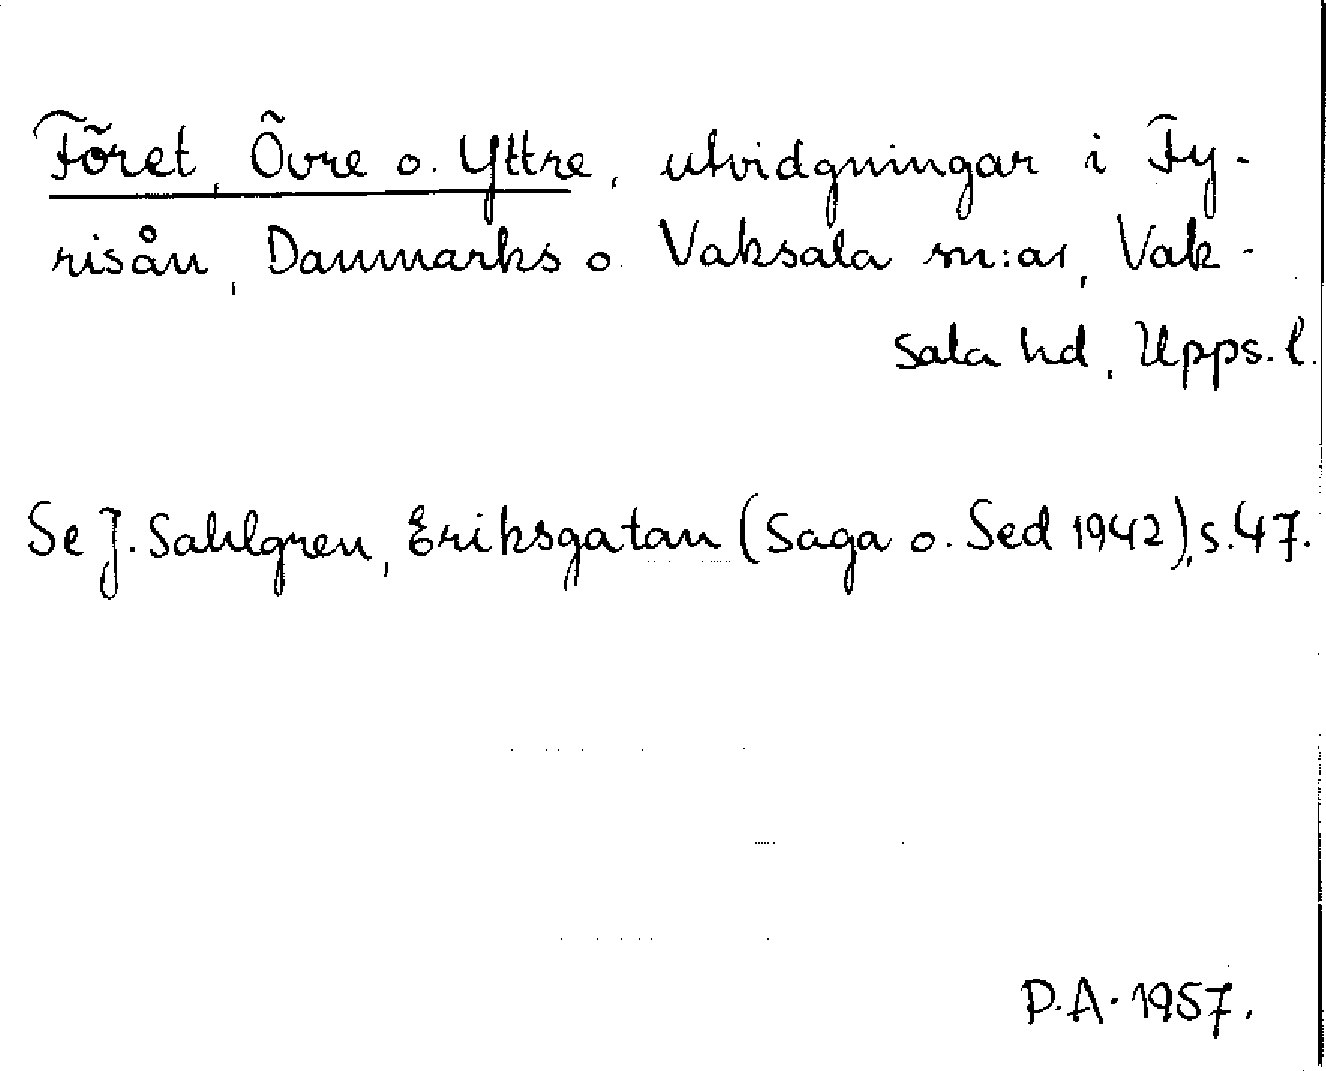 Föret, Övre o. Yttre, utvidgningar i Fy-
risån, Danmarks o. Vaksala sn:ar, Vak-
sala hd, Upps. l.
Se J. Sahlgren, Eriksgatan (Saga o. Sed 1942), s. 47.
P.A. 1957.